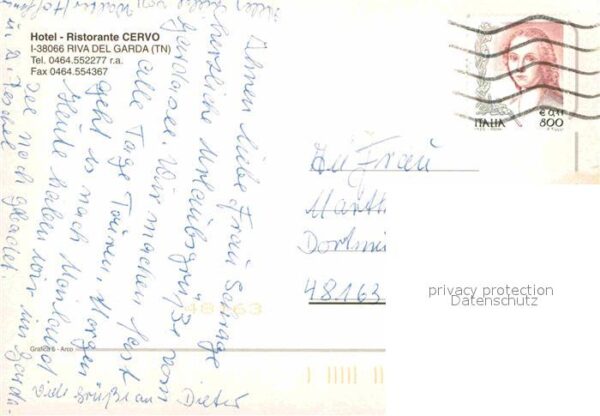 Hotel - Ristorante CERVO
I-38066 RIVA DEL GARDA (TN)
Tel. 0464.552277 r.a.
Fax 0464.554367
Ihnen liebe Frau Schrage
herzliche Urlaubsgrüße vom
Gardasee. Wir machen fast
alle Tage Touren. Morgen
geht es nach Mailand
Heute haben wir im Garda-
see noch gebadet.
Viele Grüße an Dieter
ITALIA
€ 0,41
800
An Frau
Marth
Dortmu
48163
48163
privacy protection
Datenschutz
Grafica 6 - Arco